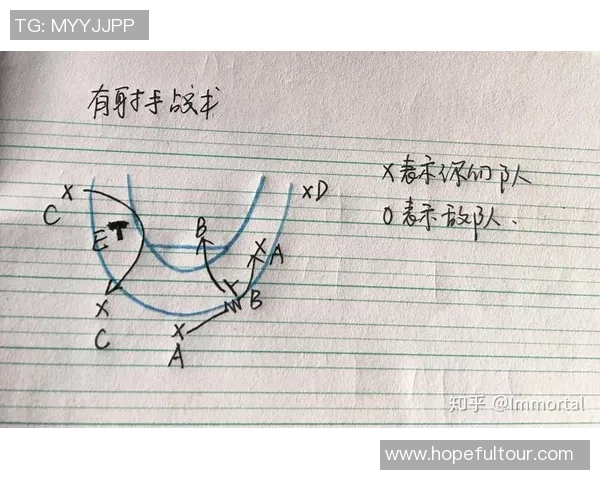 TG: MYYJJPP
有射手战术
X表示你的队
O表示敌队.
X
C
E
B
X
A
X D
X
C
X
A
B
知乎 @Immortal
www.hopefultour.com